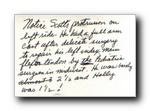 Notice Scott's protrusion on
left side. He had a full arm
cast after delicate surgery
to repair his left index, main
flexor tendon by the Pediatric
surgeon in midwest. He was only
almost 2 ½ and Halley
was 1½!